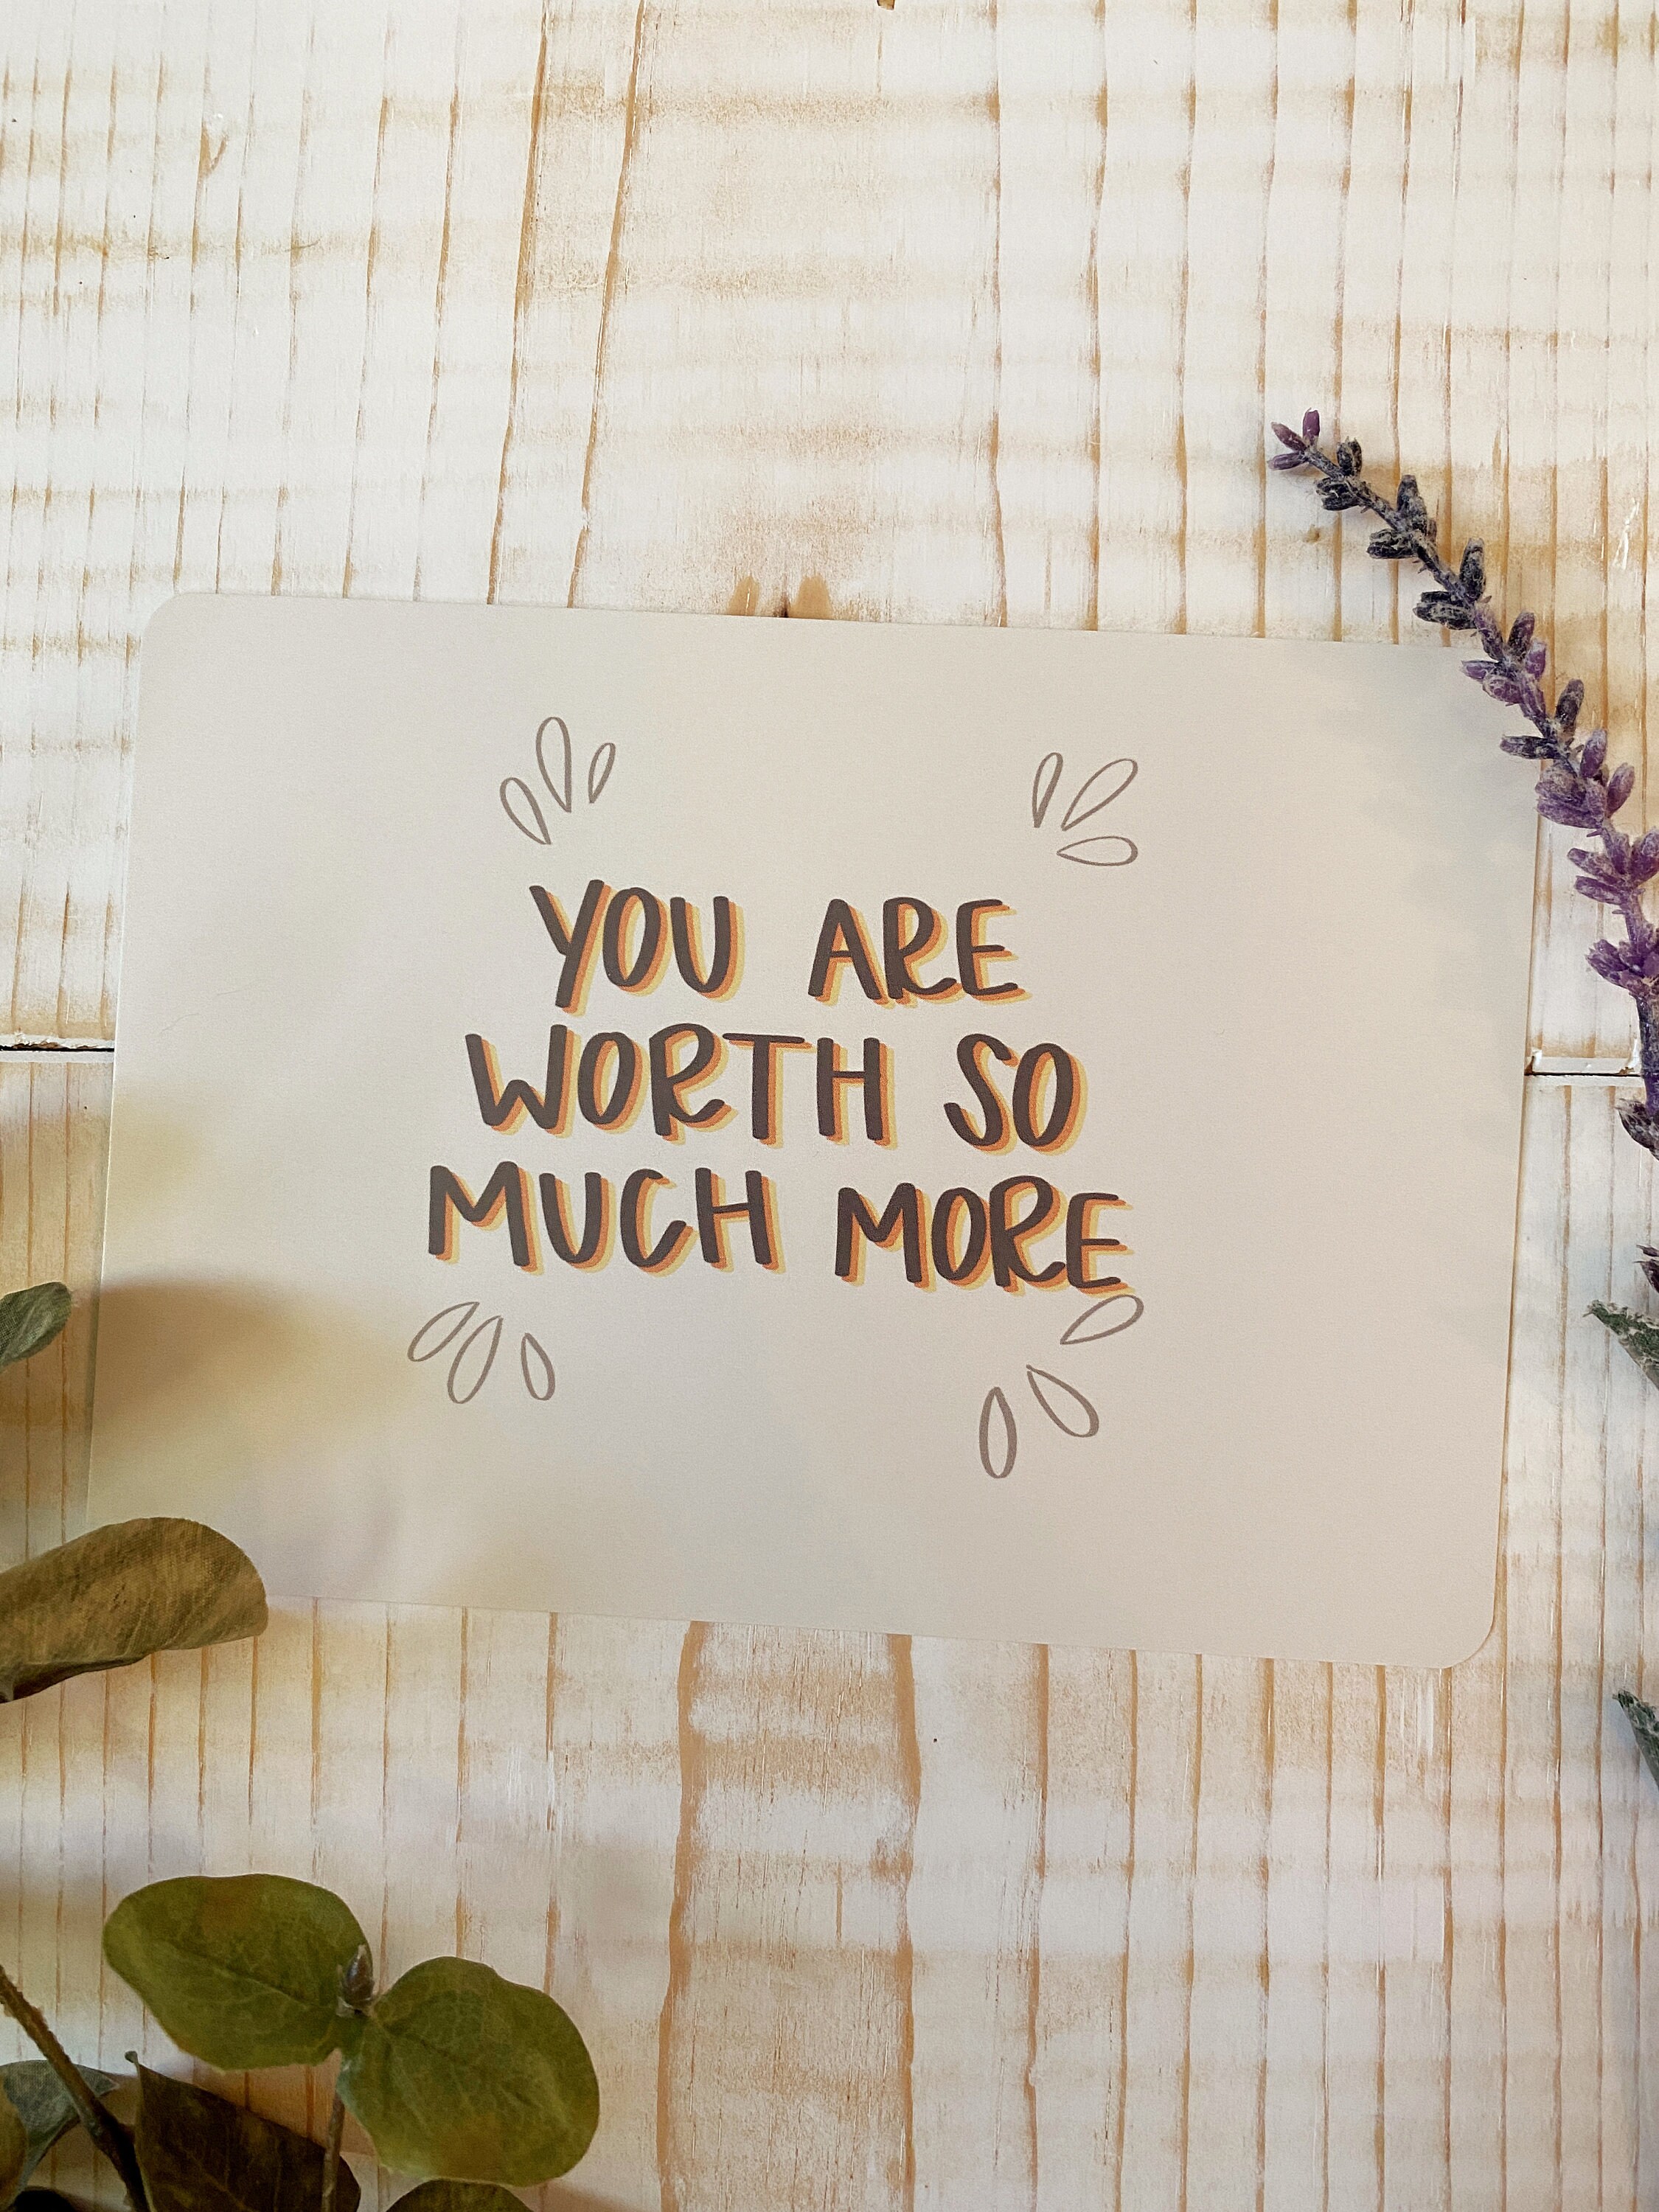 YOU ARE
WORTH SO
MUCH MORE